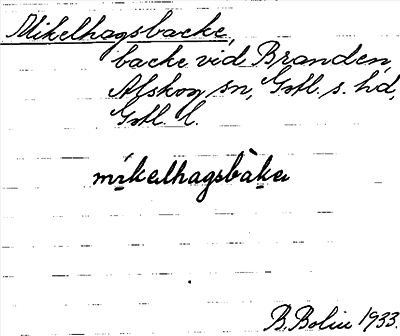 Mikelhagsbacke,
backe vid Branden,
Alskog sn, Gotl. s. hd,
Gotl. l.
míkalhagsbàka
B. Bolin 1933.